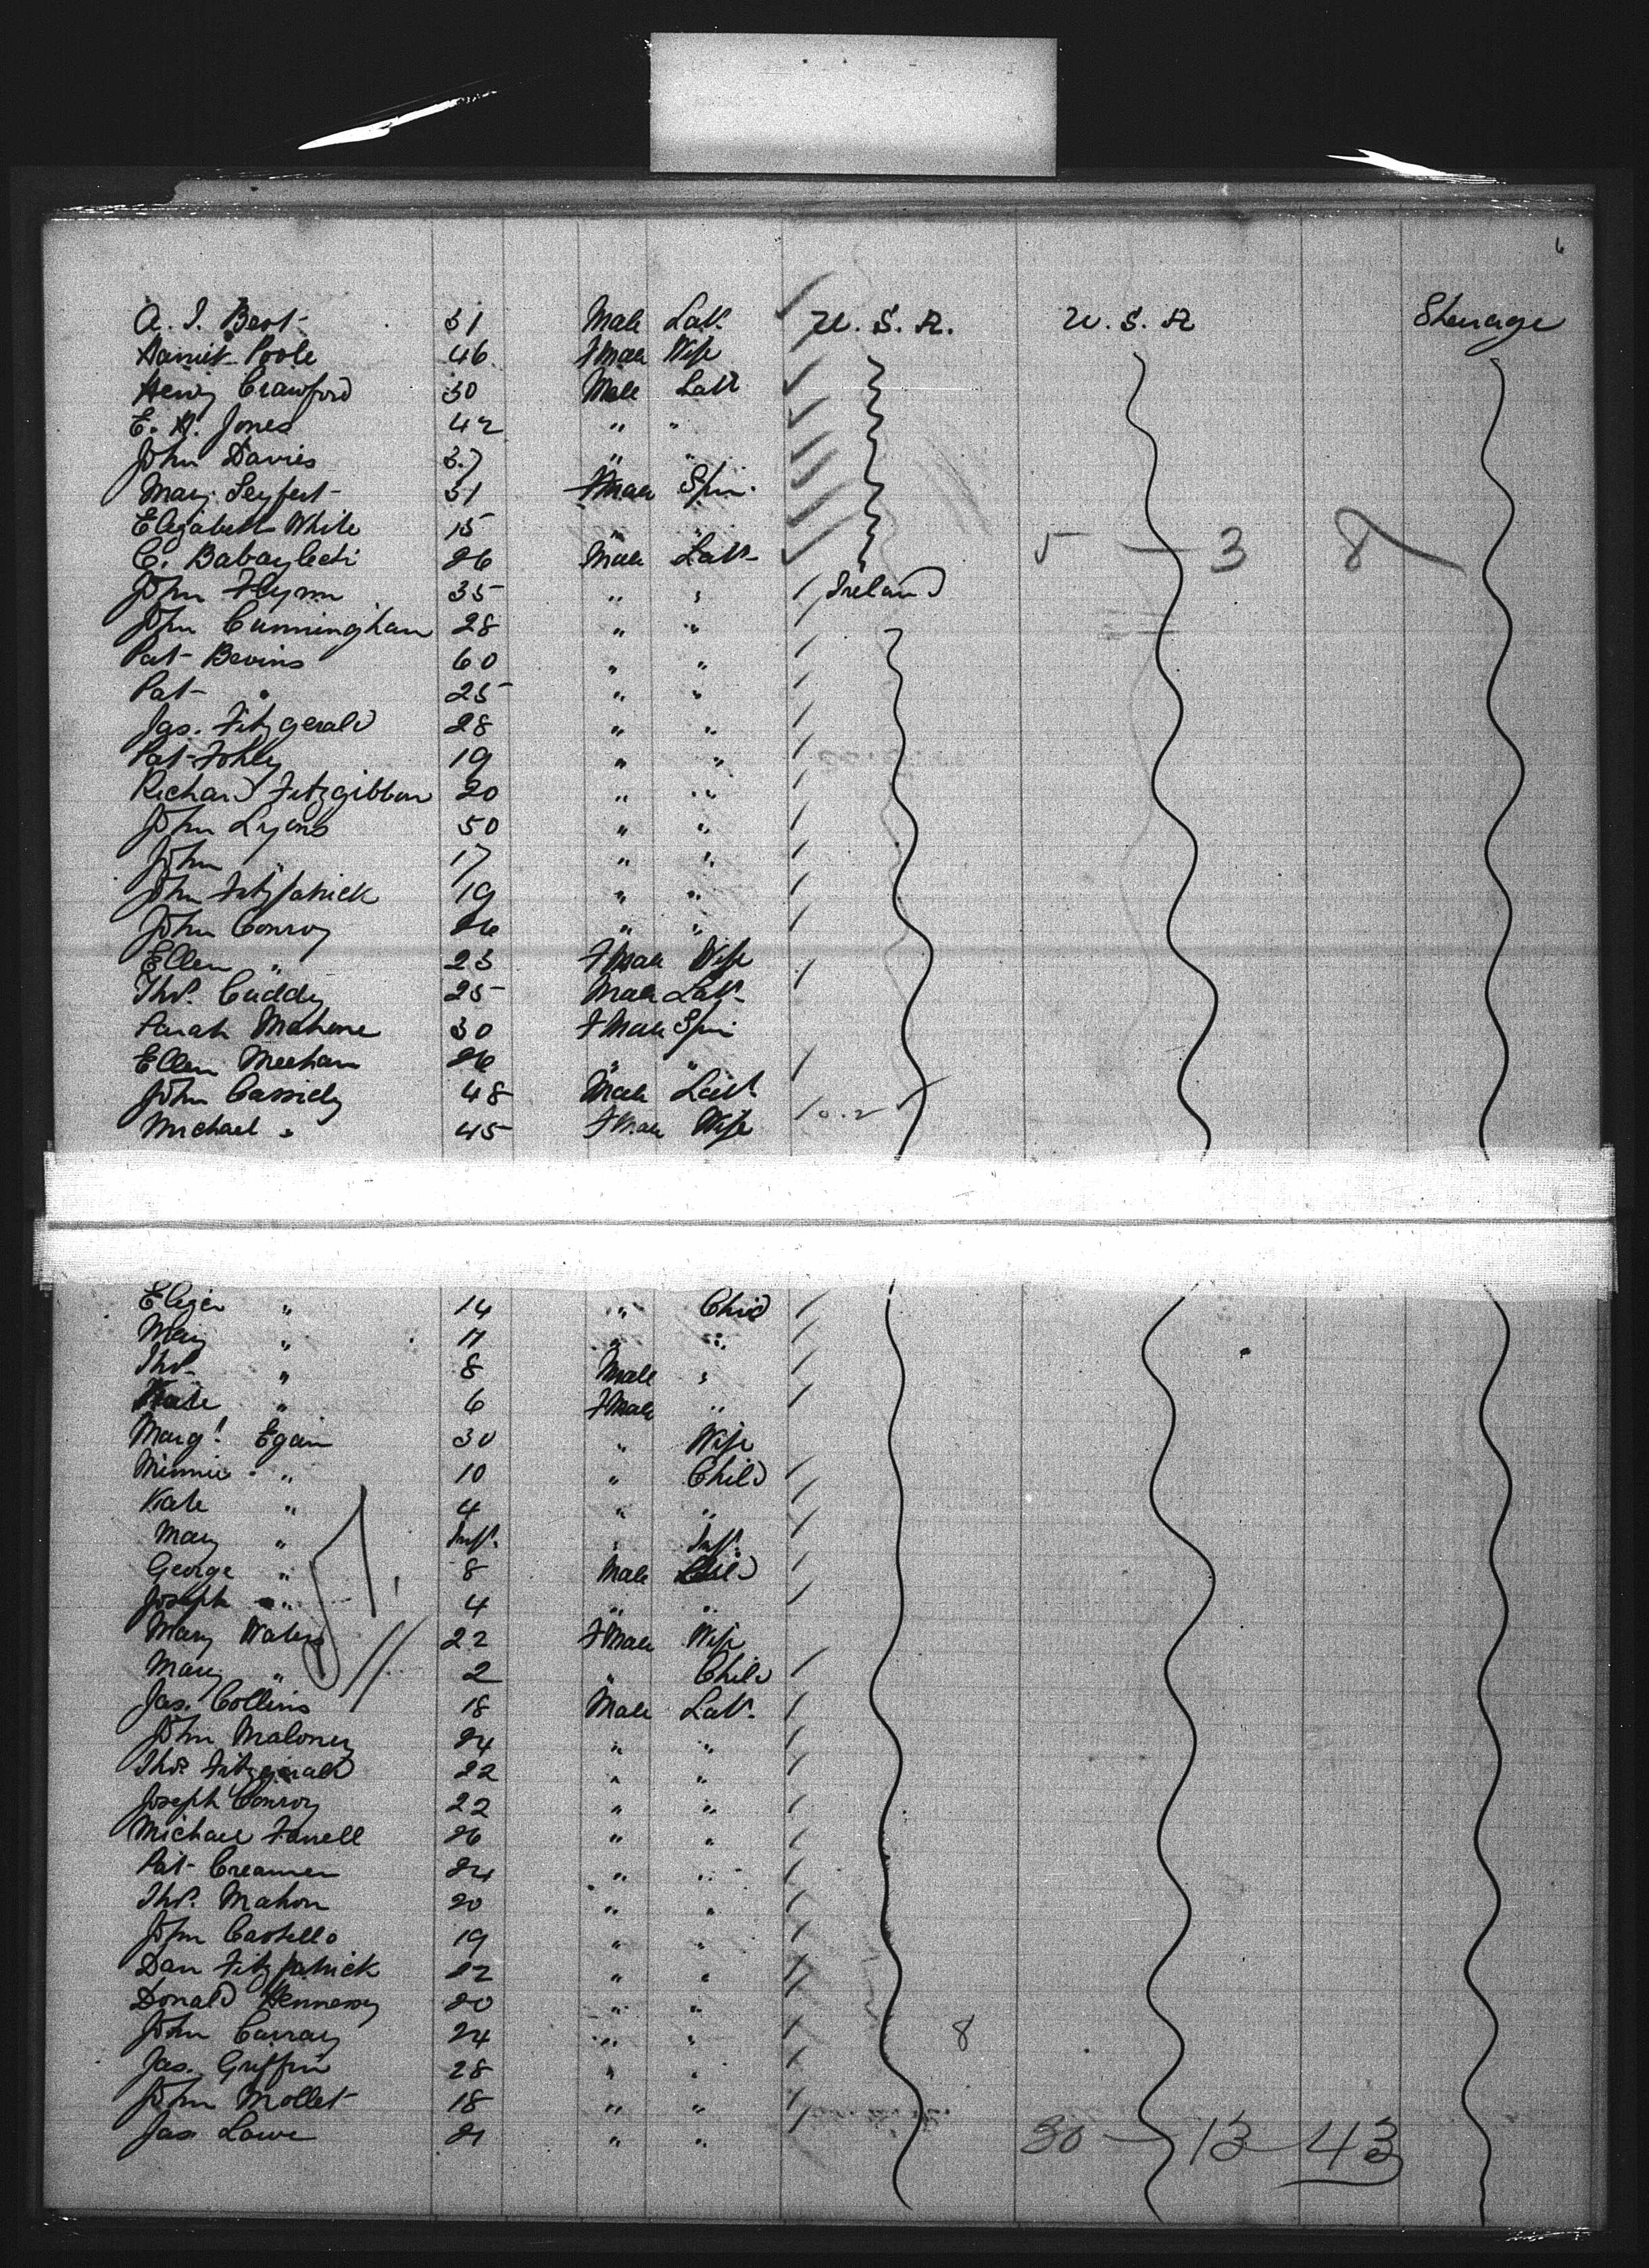 6
A. J. Best 31 Male Labr U.S.A. U.S.A Steerage
Harriet Poole 46 FMale Wife
Henry Crawford 30 Male Labr
E. H. Jones 42 " "
John Davies 37 " "
Mary Seyfert 31 FMale Spin
Elizabeth White 15 " "
C. 26 Male Labr 5 — 3 8
John Flynn 35 " " Ireland
John Cunningham 28 " "
Pat Bevins 60 " "
Pat " 25 " "
Jas. Fitzgerald 28 " "
Pat Fohey 19 " "
Richard Fitzgibbon 20 " "
John Lyons 50 " "
John " 17 " "
John Fitzpatrick 19 " "
John Conroy 26 " "
Ellen " 23 FMale Wife
Thos. Cuddy 25 Male Labr
Sarah Mahone 30 FMale Spin
Ellen Meehan 26 " "
John Cassidy 48 Male Labr
Michael " 45 FMale Wife
Eliza " 14 " Child
Mary " 11 " "
Thos. " 8 Male "
Kate " 6 FMale "
Margt. Egan 30 " Wife
Minnie " 10 " Child
Kate " 4 " "
Mary " Inft. " Inft.
George " 8 Male Child
Joseph " 4 " "
Mary Waters 22 FMale Wife
Mary " 2 " Child
Jas. Collins 18 Male Labr.
John Maloney 24 " "
Thos. Fitzgerald 22 " "
Joseph Conroy 22 " "
Michael Farrell 26 " "
Pat Creamer 24 " "
Thos. Mahon 20 " "
John Costello 19 " "
Dan Fitzpatrick 22 " "
Donald Hennessy 20 " "
John Curray 24 " " 8
Jas. Griffin 28 " "
John Mollet 18 " "
Jas Lowe 21 " " 30 — 13 — 43